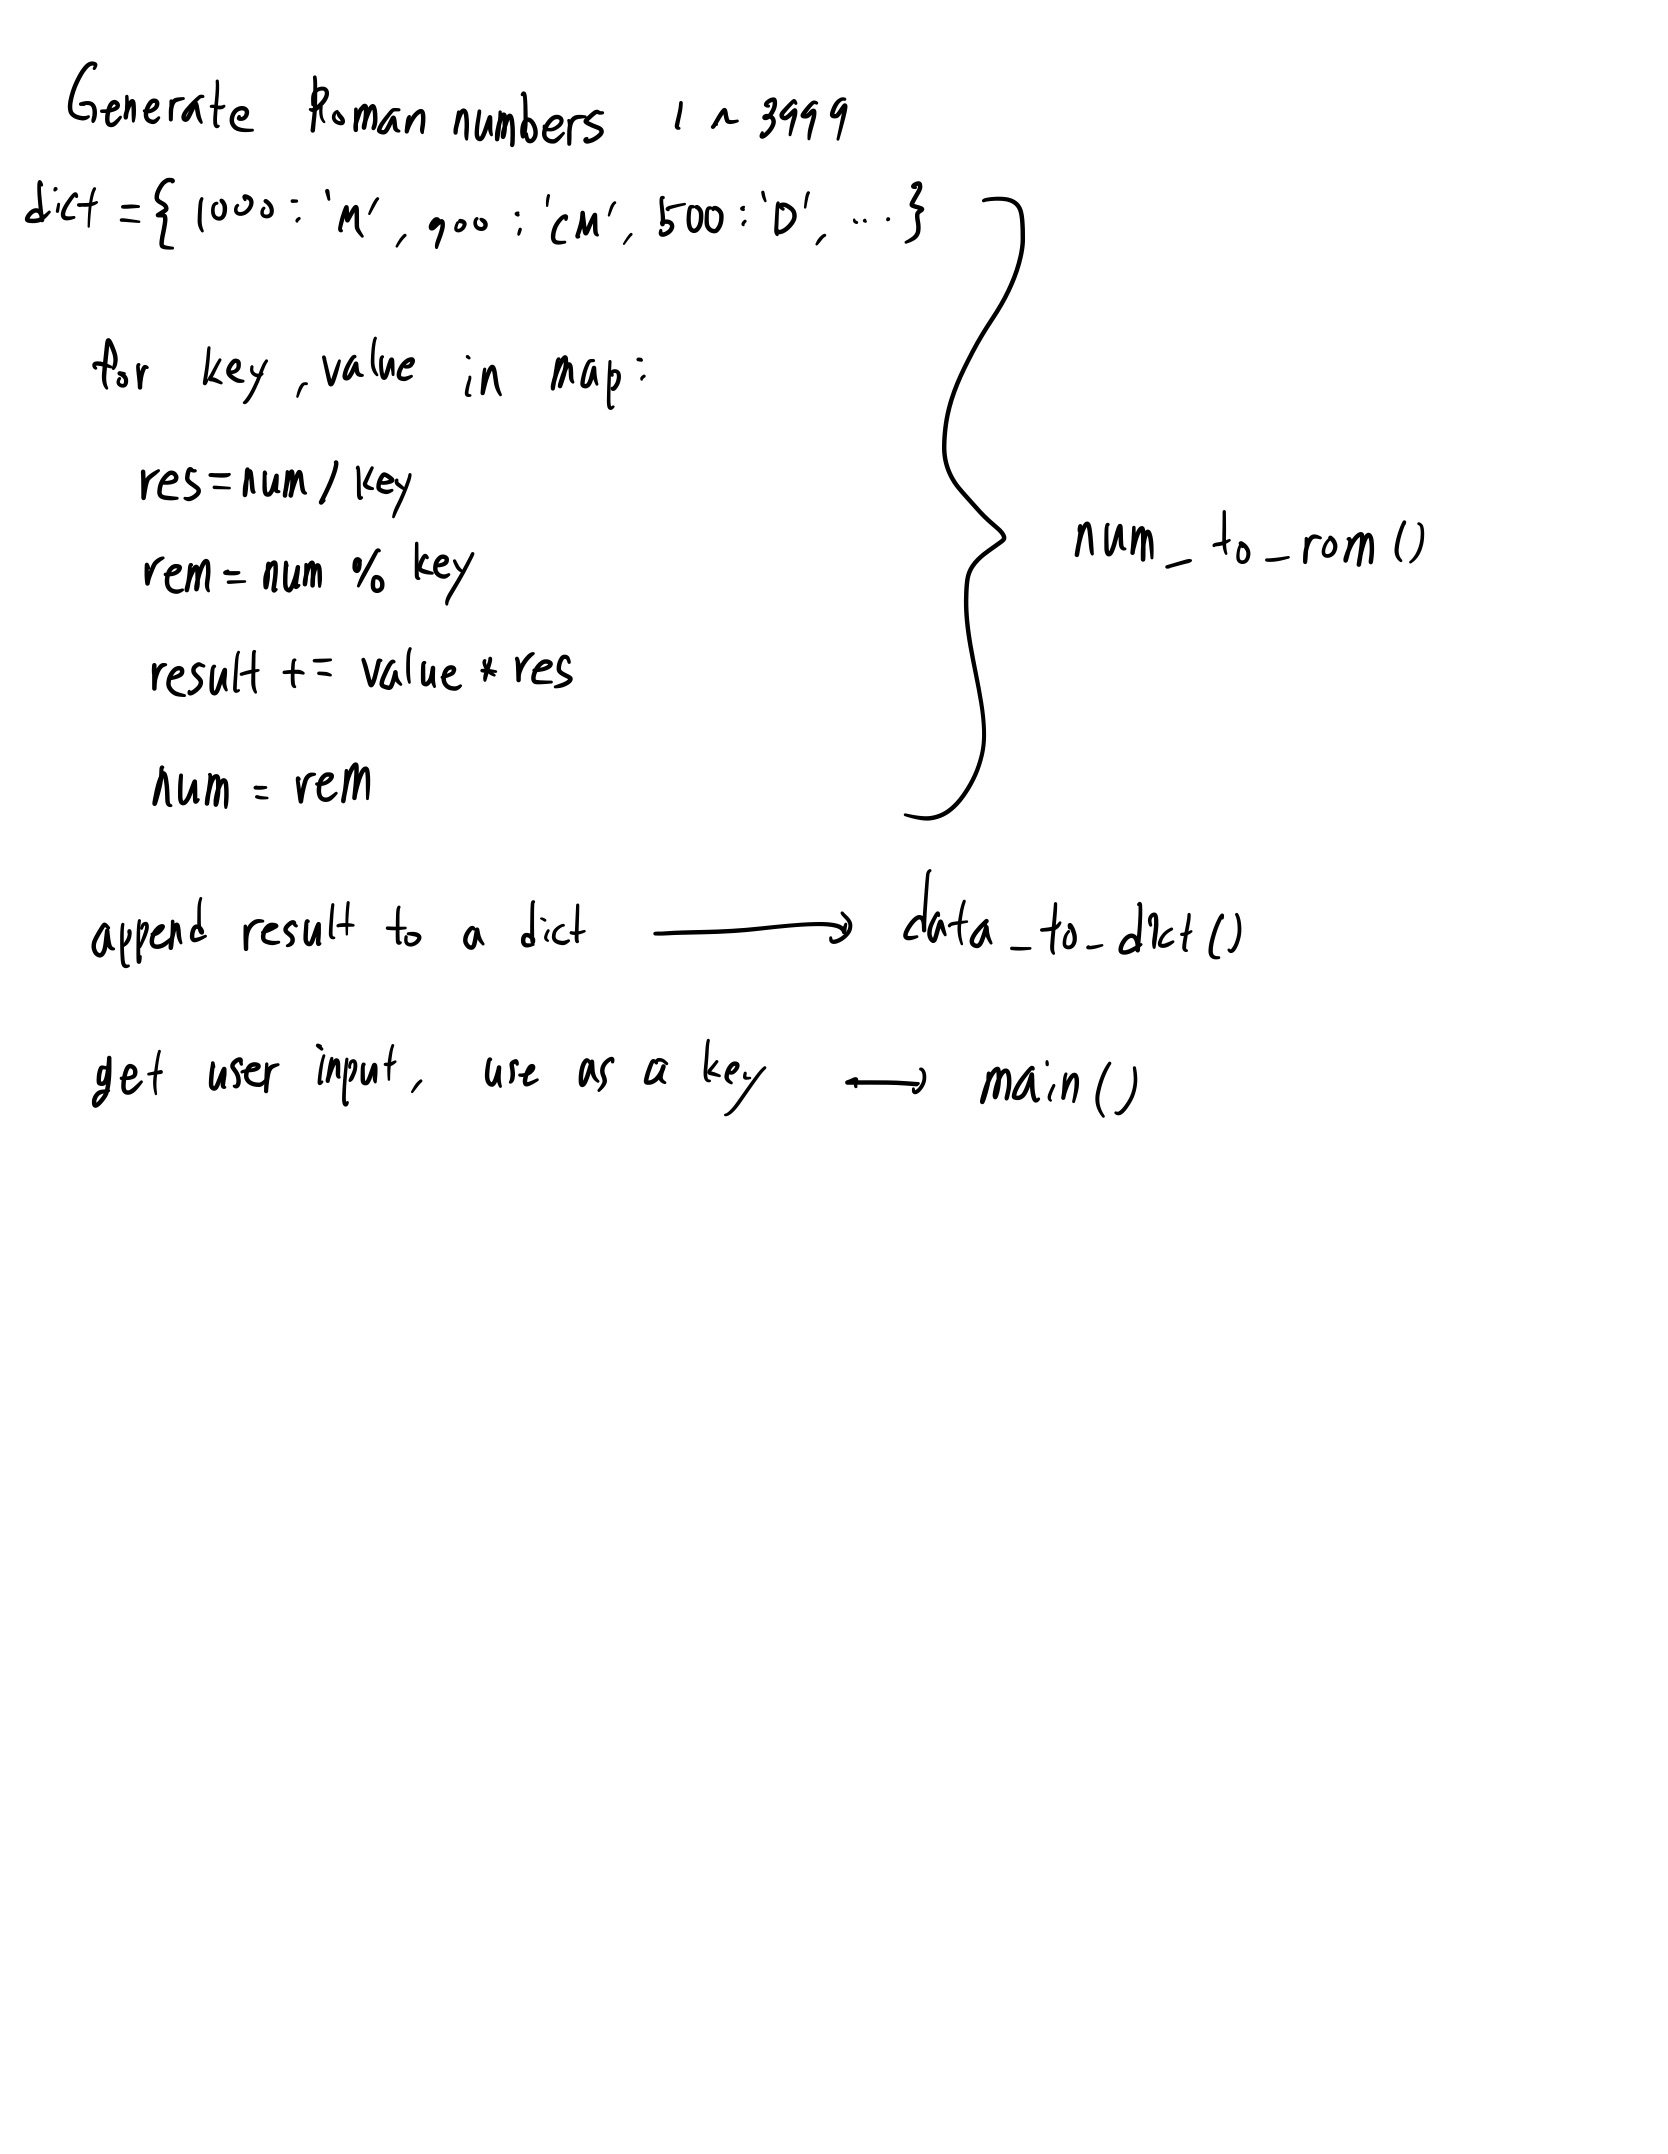 Generate Roman numbers 1 ~ 3999
dict = { 1000 : 'M', 900 : 'CM', 500 : 'D', ... }
for key, value in map:
res = num / key
rem = num % key
num_to_rom()
result += value * res
num = rem
append result to a dict → data_to_dict()
get user input, use as a key → main()